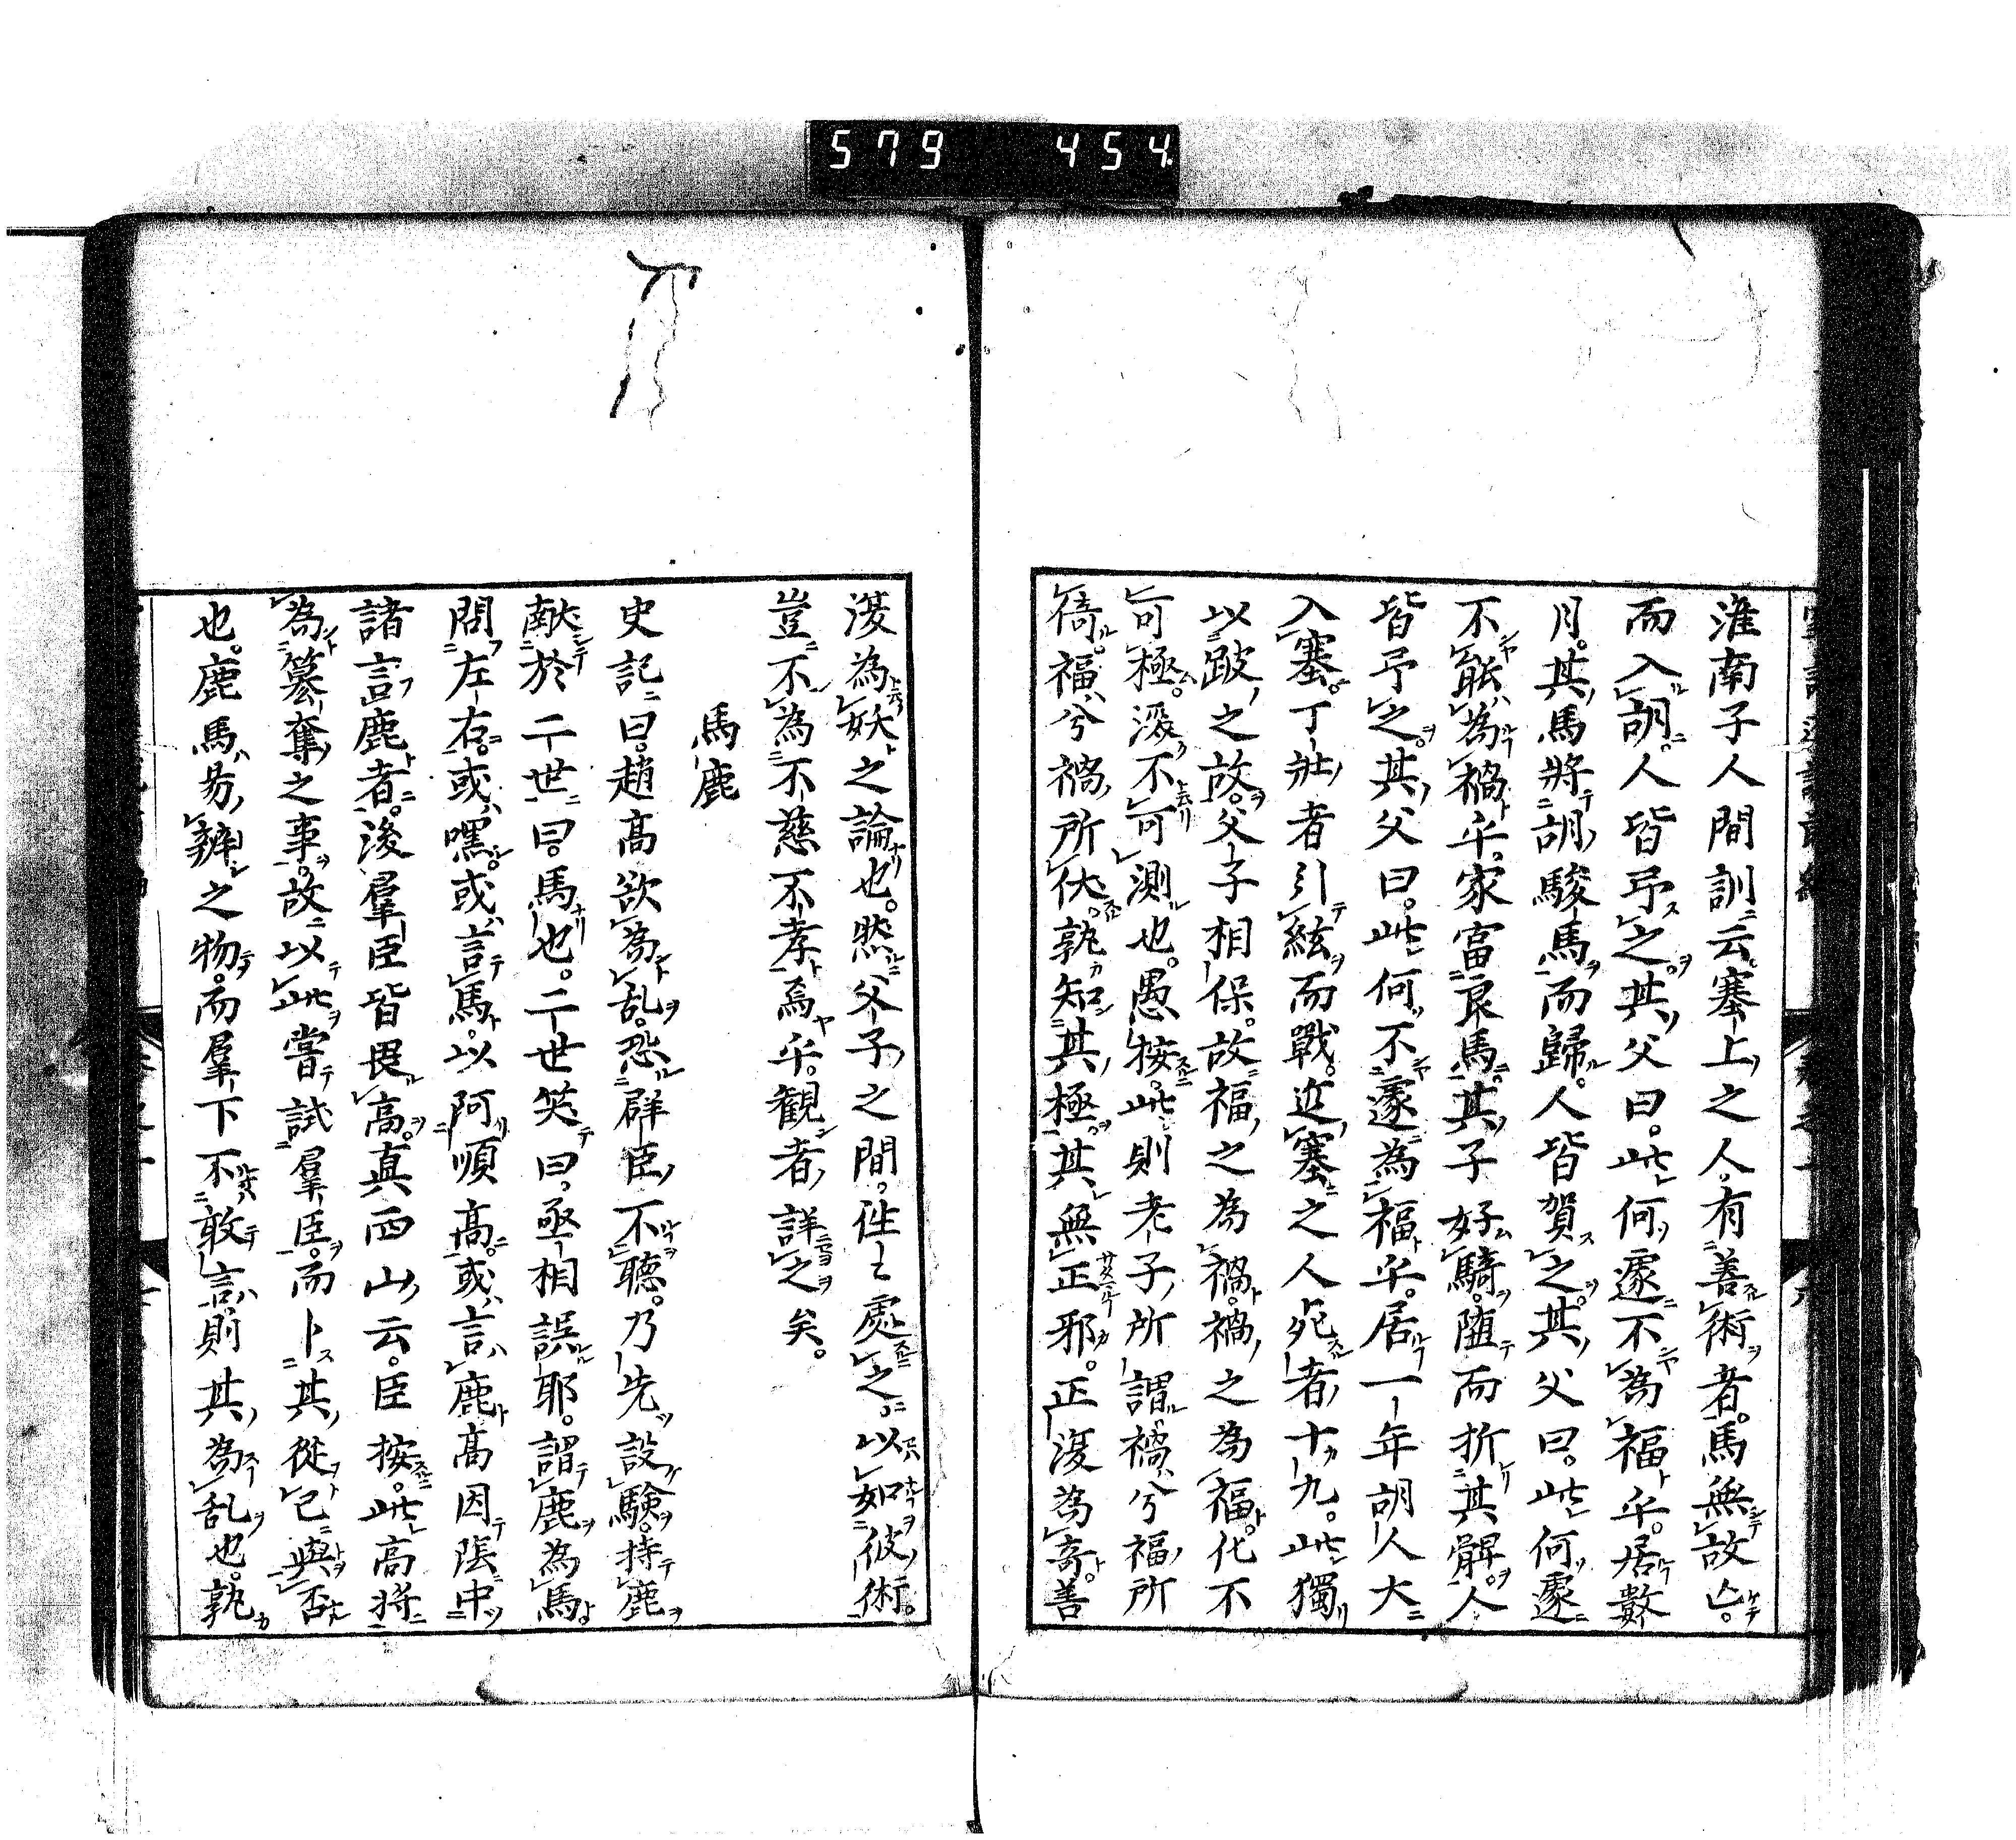 579 454
淮南子人間訓云。塞上之人有善術者。馬無故亡。
而入胡。人皆弔之。其父曰。此何遽不為福乎。居數
月。其馬將胡駿馬而歸。人皆賀之。其父曰。此何遽
不能為禍乎。家富良馬。其子好騎。墮而折其髀。人
皆弔之。其父曰。此何不遽為福乎。居一年胡人大
入塞。丁壯者引絃而戰。近塞之人死者十九。此獨
以跛之故。父子相保。故福之為禍。禍之為福。化不
可極。深不可測也。愚按。此則老子所謂禍兮福所
倚。福兮禍所伏。孰知其極。其無正邪。正復為奇。善
復為妖之論也。然父子之間。往〻處之。以如彼術。
豈不為不慈不孝焉乎。観者詳之矣。
馬鹿
史記曰。趙高欲為乱。恐群臣不聴。乃先設験。持鹿
献於二世曰。馬也。二世笑曰。丞相誤耶。謂鹿為馬
問左右。或嘿。或言馬。以阿順高。或言鹿高因陰中
諸言鹿者。後羣臣皆畏高。真西山云。臣按。此高将
為簒奪之事。故以此嘗試羣臣。而卜其從已與否
也。鹿馬易辨之物。而羣下不敢言則其為乱也。孰